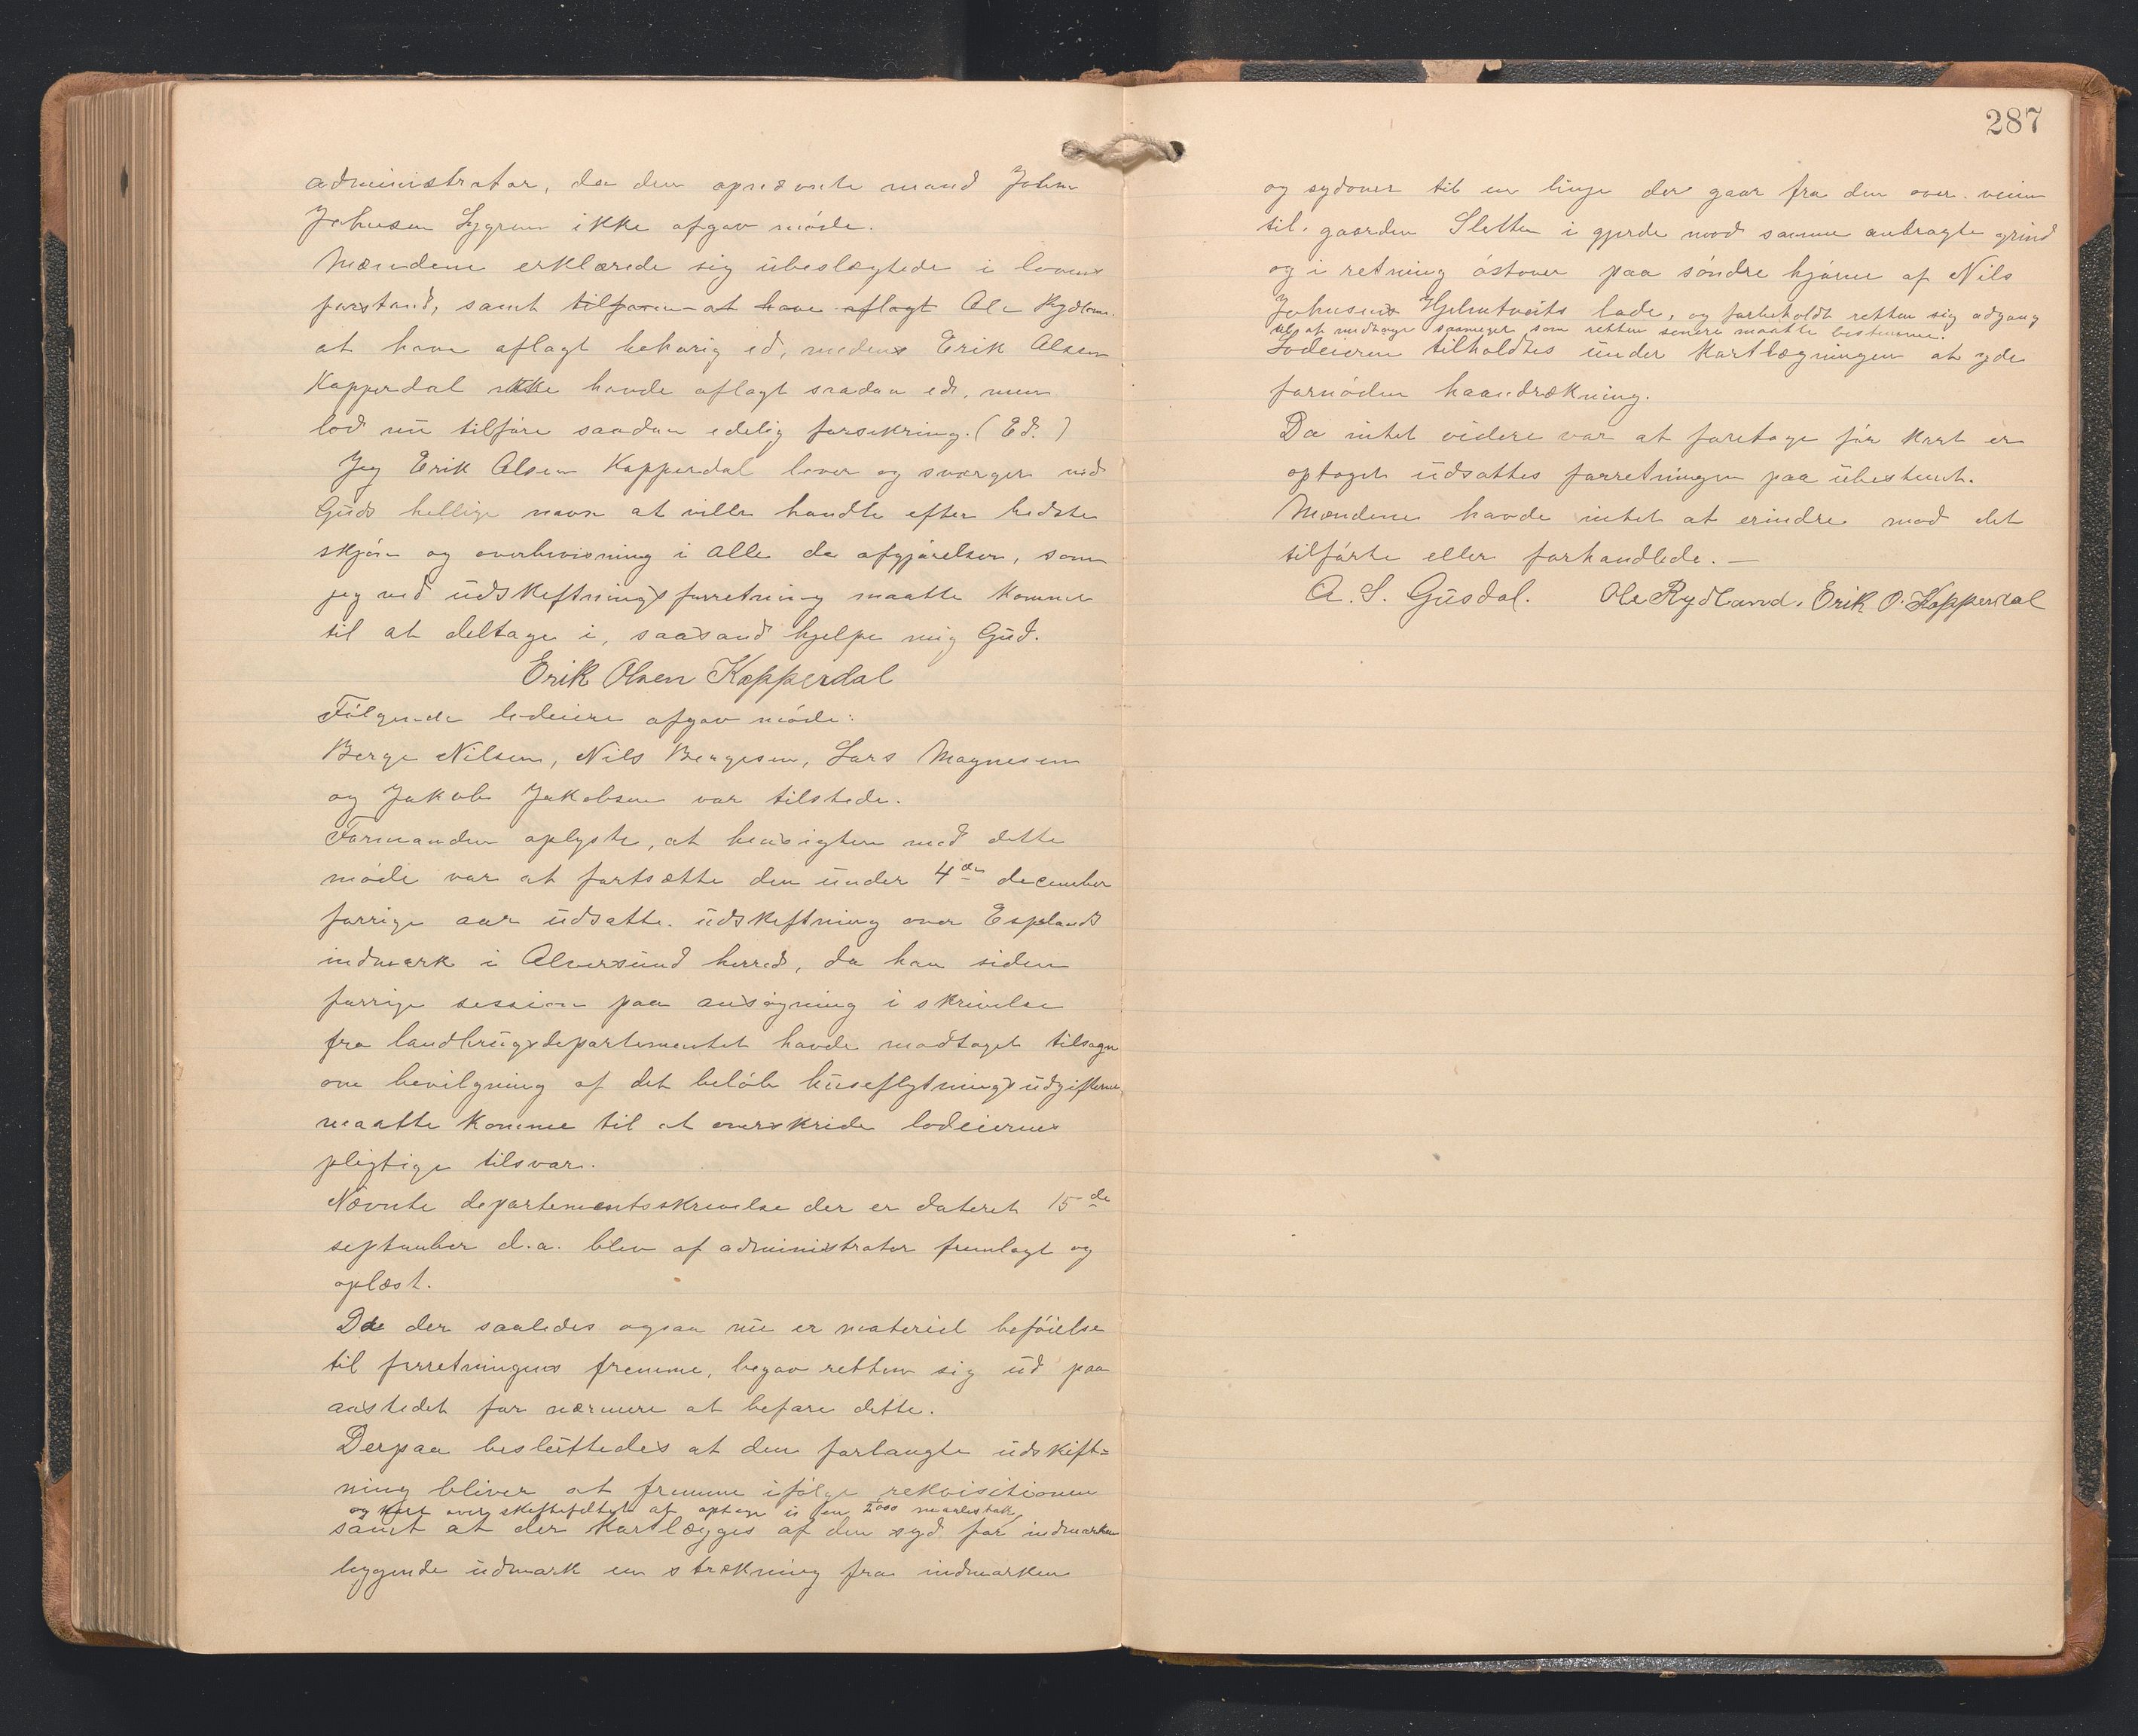 administrator, da den opnævnte mand John
Johnsen Lygren ikke afgav møde.
Mændene erklærede sig ubeslægtede i lovens
forstand, samt tilforn at have aflagt Ole Rydland
at have aflagt behørig ed, medens Erik Olsen
Kopperdal ikke havde aflagt saadan ed, men
lod nu tilføre saadan edelig forsikring. (Ed.)
Jeg Erik Olsen Kopperdal lover og sværger ved
Guds hellige navn at ville handle efter bedste
skjøn og overbevisning i alle de afgjørelser, som
jeg ved udskiftningsforretning maatte komme
til at deltage i, saasand hjelpe mig Gud.
Erik Olsen Kopperdal
Følgende lodeiere afgav møde:
Berge Nilsen, Nils Bergesen, Lars Magnesen
og Jakob Jakobsen var tilstede.
Formanden oplyste, at hensigten med dette
møde var at fortsætte den under 4de december
forrige aar udsatte udskiftning over Esplands
indmark i Alversund herred, da han siden
forrige session paa ansøgning i skrivelse
fra landbrugsdepartementet havde modtaget tilsagn
om bevilgning af det beløb huseflytningsudgifterne
maatte komme til at overskride lodeiernes
pligtige tilsvar.
Nævnte departementsskrivelse der er dateret 15de
september d.a. blev af administrator fremlagt og
oplæst.
Da der saaledes ogsaa nu er materiel beføielse
til forretningens fremme, begav retten sig ud paa
aastedet for nærmere at befare dette.
Derpaa besluttedes at den forlangte udskift=
ning bliver at fremme ifølge rekvisitionen
og kart over skiftefeltet at optage i en 2000 maalestok,
samt at der kartlægges af den syd for indmarken
liggende udmark en strækning fra indmarken
287
og sydover til en linje der gaar fra den over veien
til gaarden Sletten i gjerde mod samme anbragte grind
og i retning østover paa søndre hjørne af Nils
Johnsens Hjelmtveits lade, og forbeholdt retten sig adgang
til at medtage saameget som retten senere maatte bestemme.
Lodeierne tilholdtes under kartlægningen at yde
fornøden haandrækning.
Da intet videre var at foretage før kart er
optaget udsattes forretningen paa ubestemt.
Mændene havde intet at erindre mod det
tilførte eller forhandlede. —
A. S. Gusdal. Ole Rydland. Erik O. Kopperdal